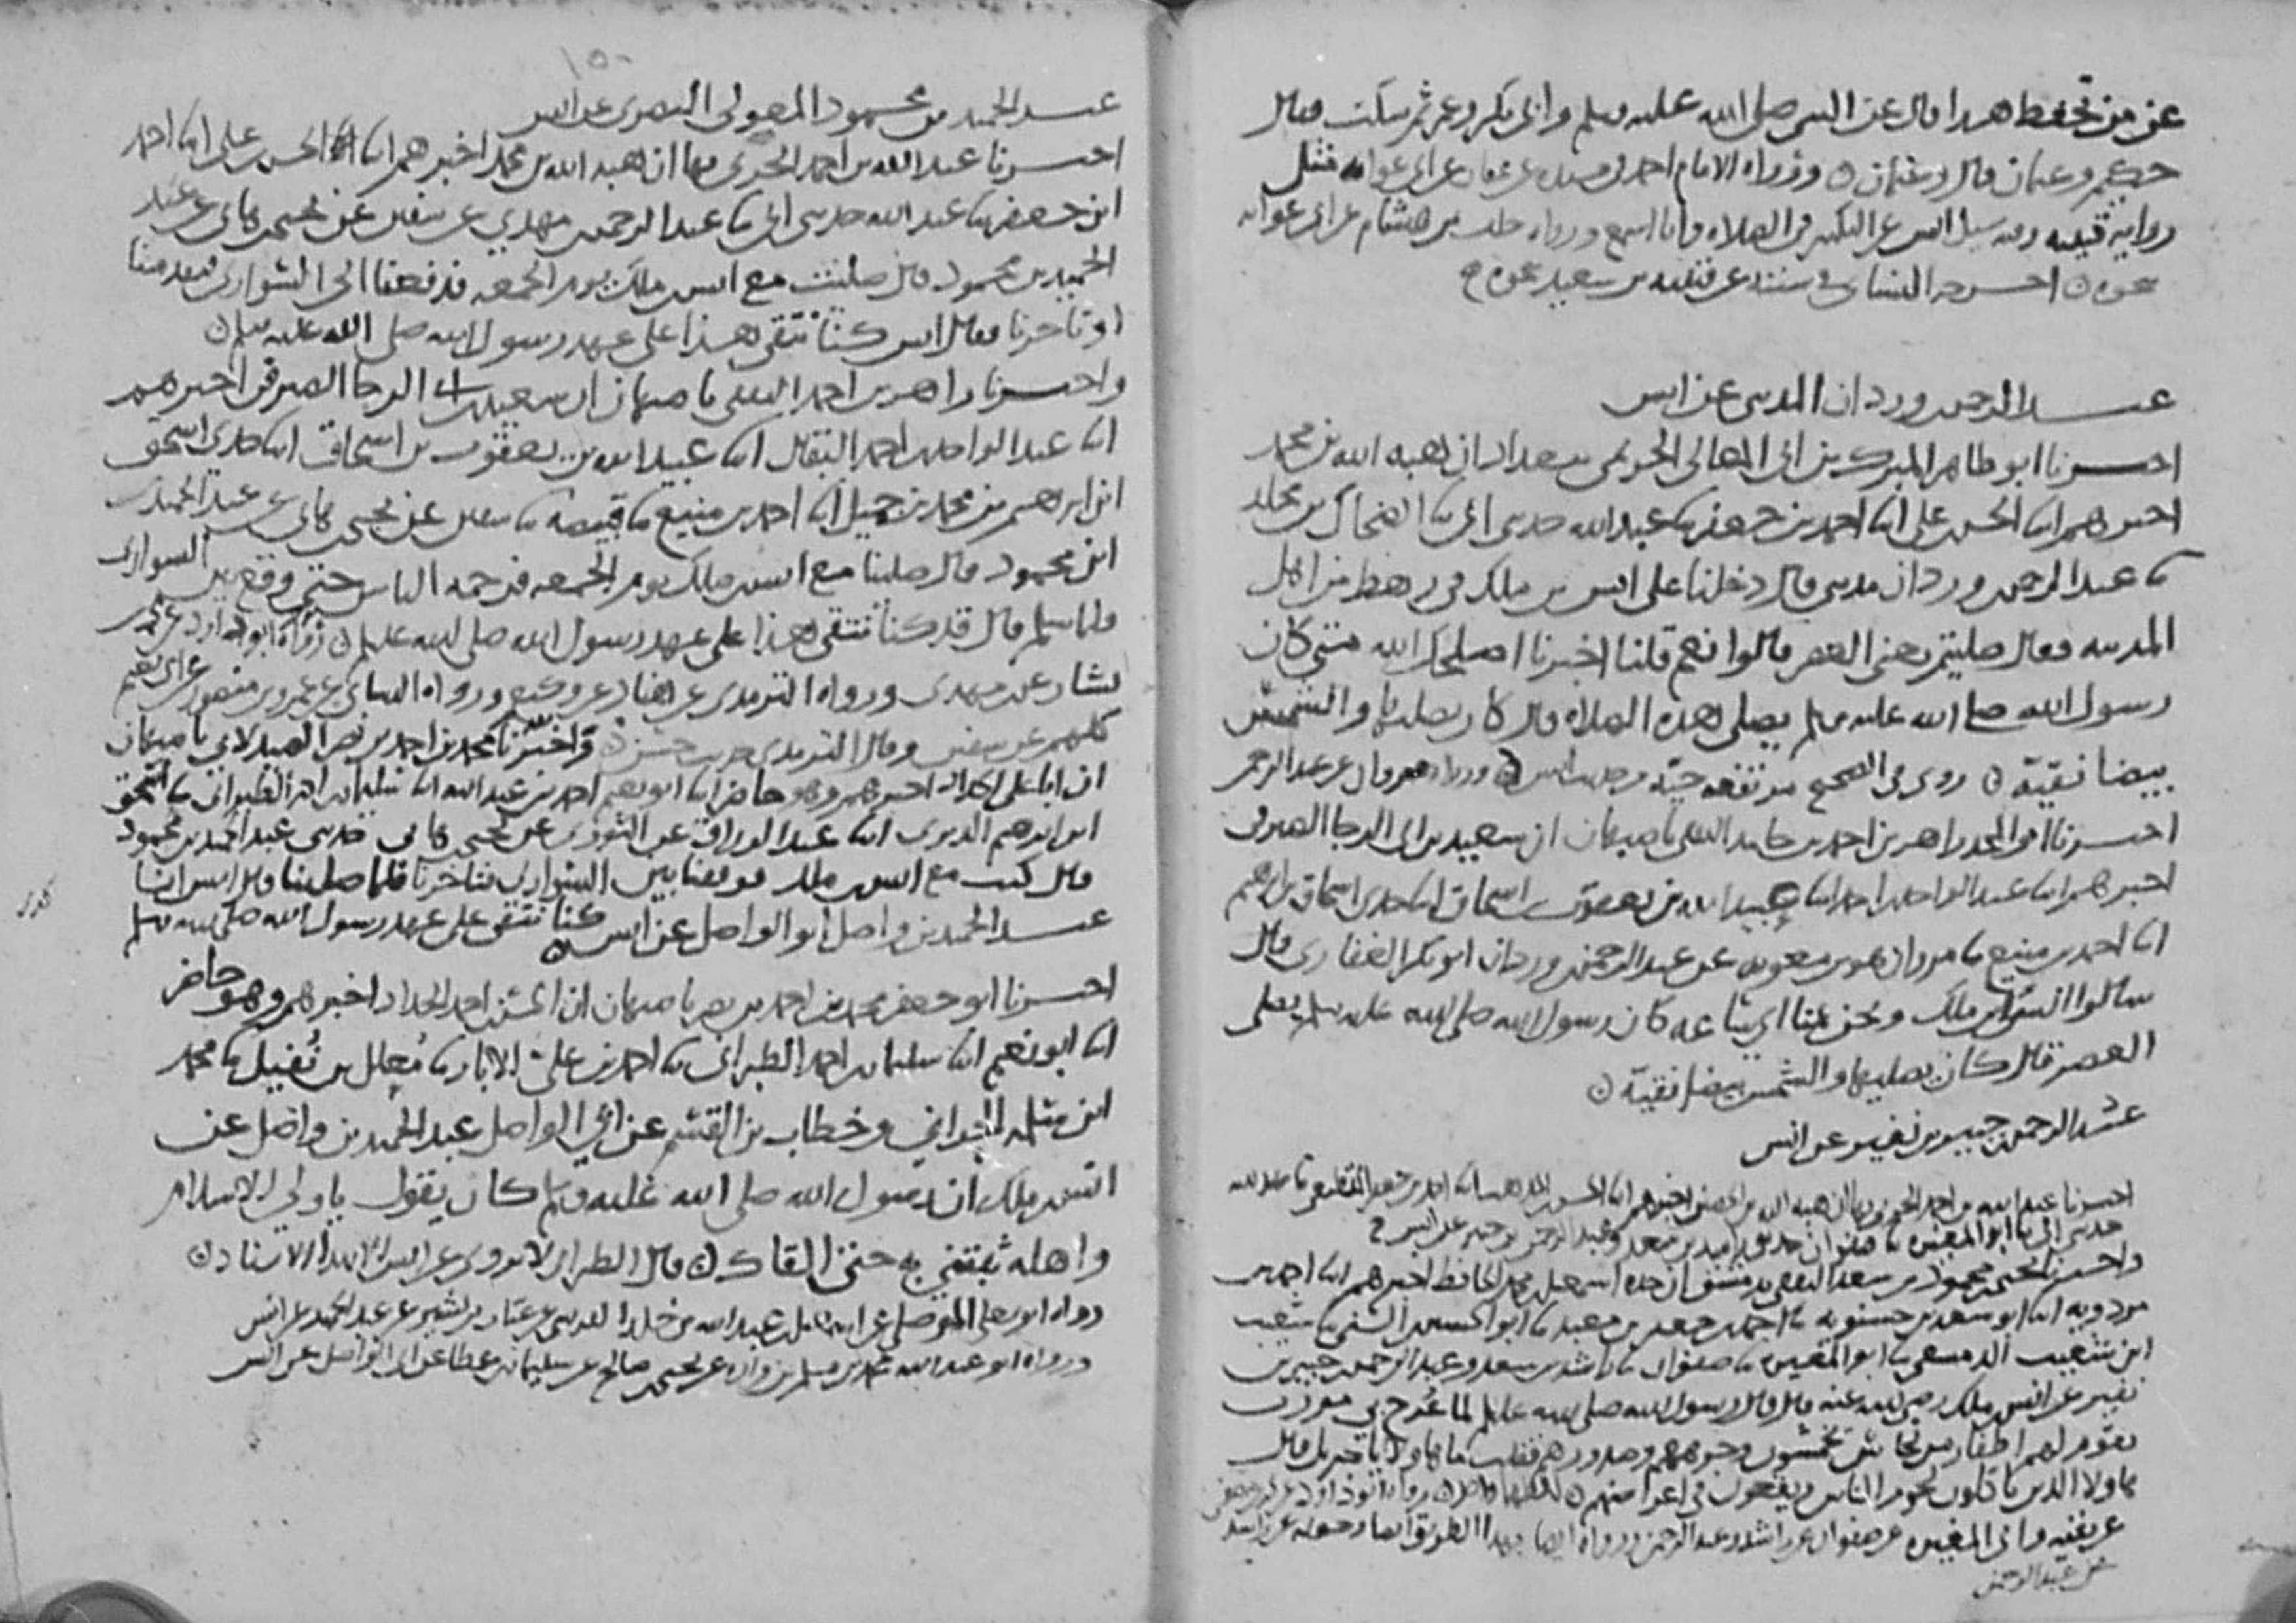 عن من تحفظ هذا قال عن النبي صلى الله عليه وسلم وابي بكر وعمر ثم سكت فقال
حكيم وعثمان قال وعثمان ورواه الامام احمد في مسنده عن عفان عن ابي عوانه مثل
رواية قتيبه وفيه سئل انس عن التكبير في الصلاه وانا اسمع ورواه خلف بن هشام عن ابي عوانه
نحوه اخرجه النسائي في سننه عن قتيبه بن سعيد نحوه
عبد الرحمن وردان المدني عن انس
اخبرنا ابو طاهر المبرك بن ابي المعالي الحريمي ببغداد ان هبه الله بن محمد
اخبرهم ابنا الحسن علي ابنا احمد بن جعفر ثنا عبد الله حدثني ابي ثنا الضحاك بن مخلد
ثنا عبد الرحمن وردان مديني قال دخلنا على انس بن ملك في رهط من اهل
المدينه فقال صليتم يعني العصر قالوا نعم قلنا اخبرنا اصلحك الله متى كان
رسول الله صلى الله عليه وسلم يصلي هذه الصلاه قال كان يصليها والشمس
بيضا نقية روي في الصحيح مرتفعه حيّة من حديث انس ورواه مروان عن عبد الرحمن
اخبرنا ابو المجد زاهر بن احمد بن حامد الثقفي باصبهان ان سعيد بن ابي الرجا الصيرفي
اخبرهم ابنا عبد الواحد احمد ابنا عبيد الله بن يعقوب اسحاق ابنا جدي اسحاق بن ابرهيم
ابنا احمد بن منيع ثنا مروان هو بن معويه عن عبد الرحمن وردان ابو بكر الغفاري قال
سالوا انس بن ملك ونحن عنده اي ساعه كان رسول الله صلى الله عليه وسلم يصلي
العصر قال كان يصليها والشمس بيضا نقية
عبد الرحمن جبير بن نفير عن انس
اخبرنا عبد الله بن احمد الحربي بها ان هبه الله بن الحصين اخبرهم ابنا الحسن المذهب ابنا احمد بن جعفر القطيعي ثنا عبد الله
حدثني ابي ثنا ابو المغيره ثنا صفوان حدثني راشد بن سعد وعبد الرحمن بن جبير عن انس ح
واخبرنا يحيى محمود بن سعد الثقفي بدمشق ان جده اسمعيل محمد الحافظ اخبرهم ابنا احمد بن
مردويه ابنا ابو سعد بن حسنويه ثنا احمد جعفر بن معبد ثنا ابو الحسين ثنا شعيب
ابن شعيب الدمشقي ثنا ابو المغيره ثنا صفوان ثنا راشد بن سعد وعبد الرحمن جبير بن
نفير عن انس ملك رضي الله عنه قال قال رسول الله صلى الله عليه وسلم لما عُرج بي مررت
بقوم لهم اظفار من نحاس يخمشون وجوههم وصدورهم فقلت ما هاولا يا جبريل قال
هاولا الذين ياكلون لحوم الناس ويقعون في اعراضهم رواه ابو داود عن ابن مصفى
عن بقيه وابي المغيره عن صفوان عن راشد وعبد الرحمن ورواه ايضا بهذا الطريق
عن عبد الرحمن
١٥٠
عبد الحميد بن محمود المعولي البصري عن انس
اخبرنا عبد الله بن احمد الحربي بها ان هبه الله بن محمد اخبرهم ابنا الحسن علي ابنا احمد
ابن جعفر ثنا عبد الله حدثني ابي ثنا عبد الرحمن مهدي عن سفين عن يحيى هاني عن عبد
الحميد بن محمود قال صليت مع انس ملك يوم الجمعه فدفعنا الى السواري فتقدمنا
او تاخرنا فقال انس كنا نتقي هذا على عهد رسول الله صلى الله عليه وسلم
واخبرنا زاهر بن احمد الثقفي باصبهان ان سعيد بن ابي الرجا الصيرفي اخبرهم
ابنا عبد الواحد احمد البقال ابنا عبيد الله بن يعقوب بن اسحاق ابنا جدي اسحق
ابن ابرهيم بن محمد بن جميل ابنا احمد بن منيع ثنا قبيصه ثنا سفين عن يحيى هاني عن عبد الحميد
ابن محمود قال صلينا مع انس ملك يوم الجمعه فزحمه الناس حتى وقع بين السواري
فلما سلم قال قد كنا نتقي هذا على عهد رسول الله صلى الله عليه وسلم رواه ابو داود عن محمد بن
بشار عن مهدي ورواه الترمذي عن هناد عن وكيع ورواه النسائي عن عمرو بن منصور عن ابي نعيم
كلهم عن سفين وقال الترمذي حديث حسن واخبرنا محمد بن احمد بن نصر الصيدلاني باصبهان
ان ابا علي الحداد اخبرهم وهو حاضر ابنا ابو نعيم احمد بن عبد الله ابنا سليمان احمد الطبراني ثنا اسحق
ابن ابرهيم الدبري ابنا عبد الرزاق عن الثوري عن يحيى هاني حدثني عبد الحميد بن محمود
قال كنت مع انس ملك فوقفنا بين السواري فتاخرنا فلما صلينا قال انس انا
كنا نتقي على عهد رسول الله صلى الله عليه وسلم
عبد الحميد بن واصل ابو الواصل عن انس
اخبرنا ابو جعفر محمد بن احمد بن نصر باصبهان ان الحسن احمد الحداد اخبرهم وهو حاضر
ابنا ابو نعيم ابنا سليمان احمد الطبراني ثنا احمد بن علي الابار ثنا مُعلل بن نُفيل ثنا محمد
ابن سلمه الحراني وخطاب بن القسم عن ابي الواصل عبد الحميد بن واصل عن
انس ملك ان رسول الله صلى الله عليه وسلم كان يقول يا ولي الاسلام
واهله ثبتني به حتى القاك قال الطبراني لا يروى عن انس الا بهذا الاسناد
رواه ابو يعلى الموصلي عن عبد الله بن خلد عن عتاب بن بشير عن عبد الحميد عن انس
ورواه ابو عبد الله محمد بن مسلم بن واره عن يحيى صالح عن سليمان عطا عن ابي الواصل عن انس